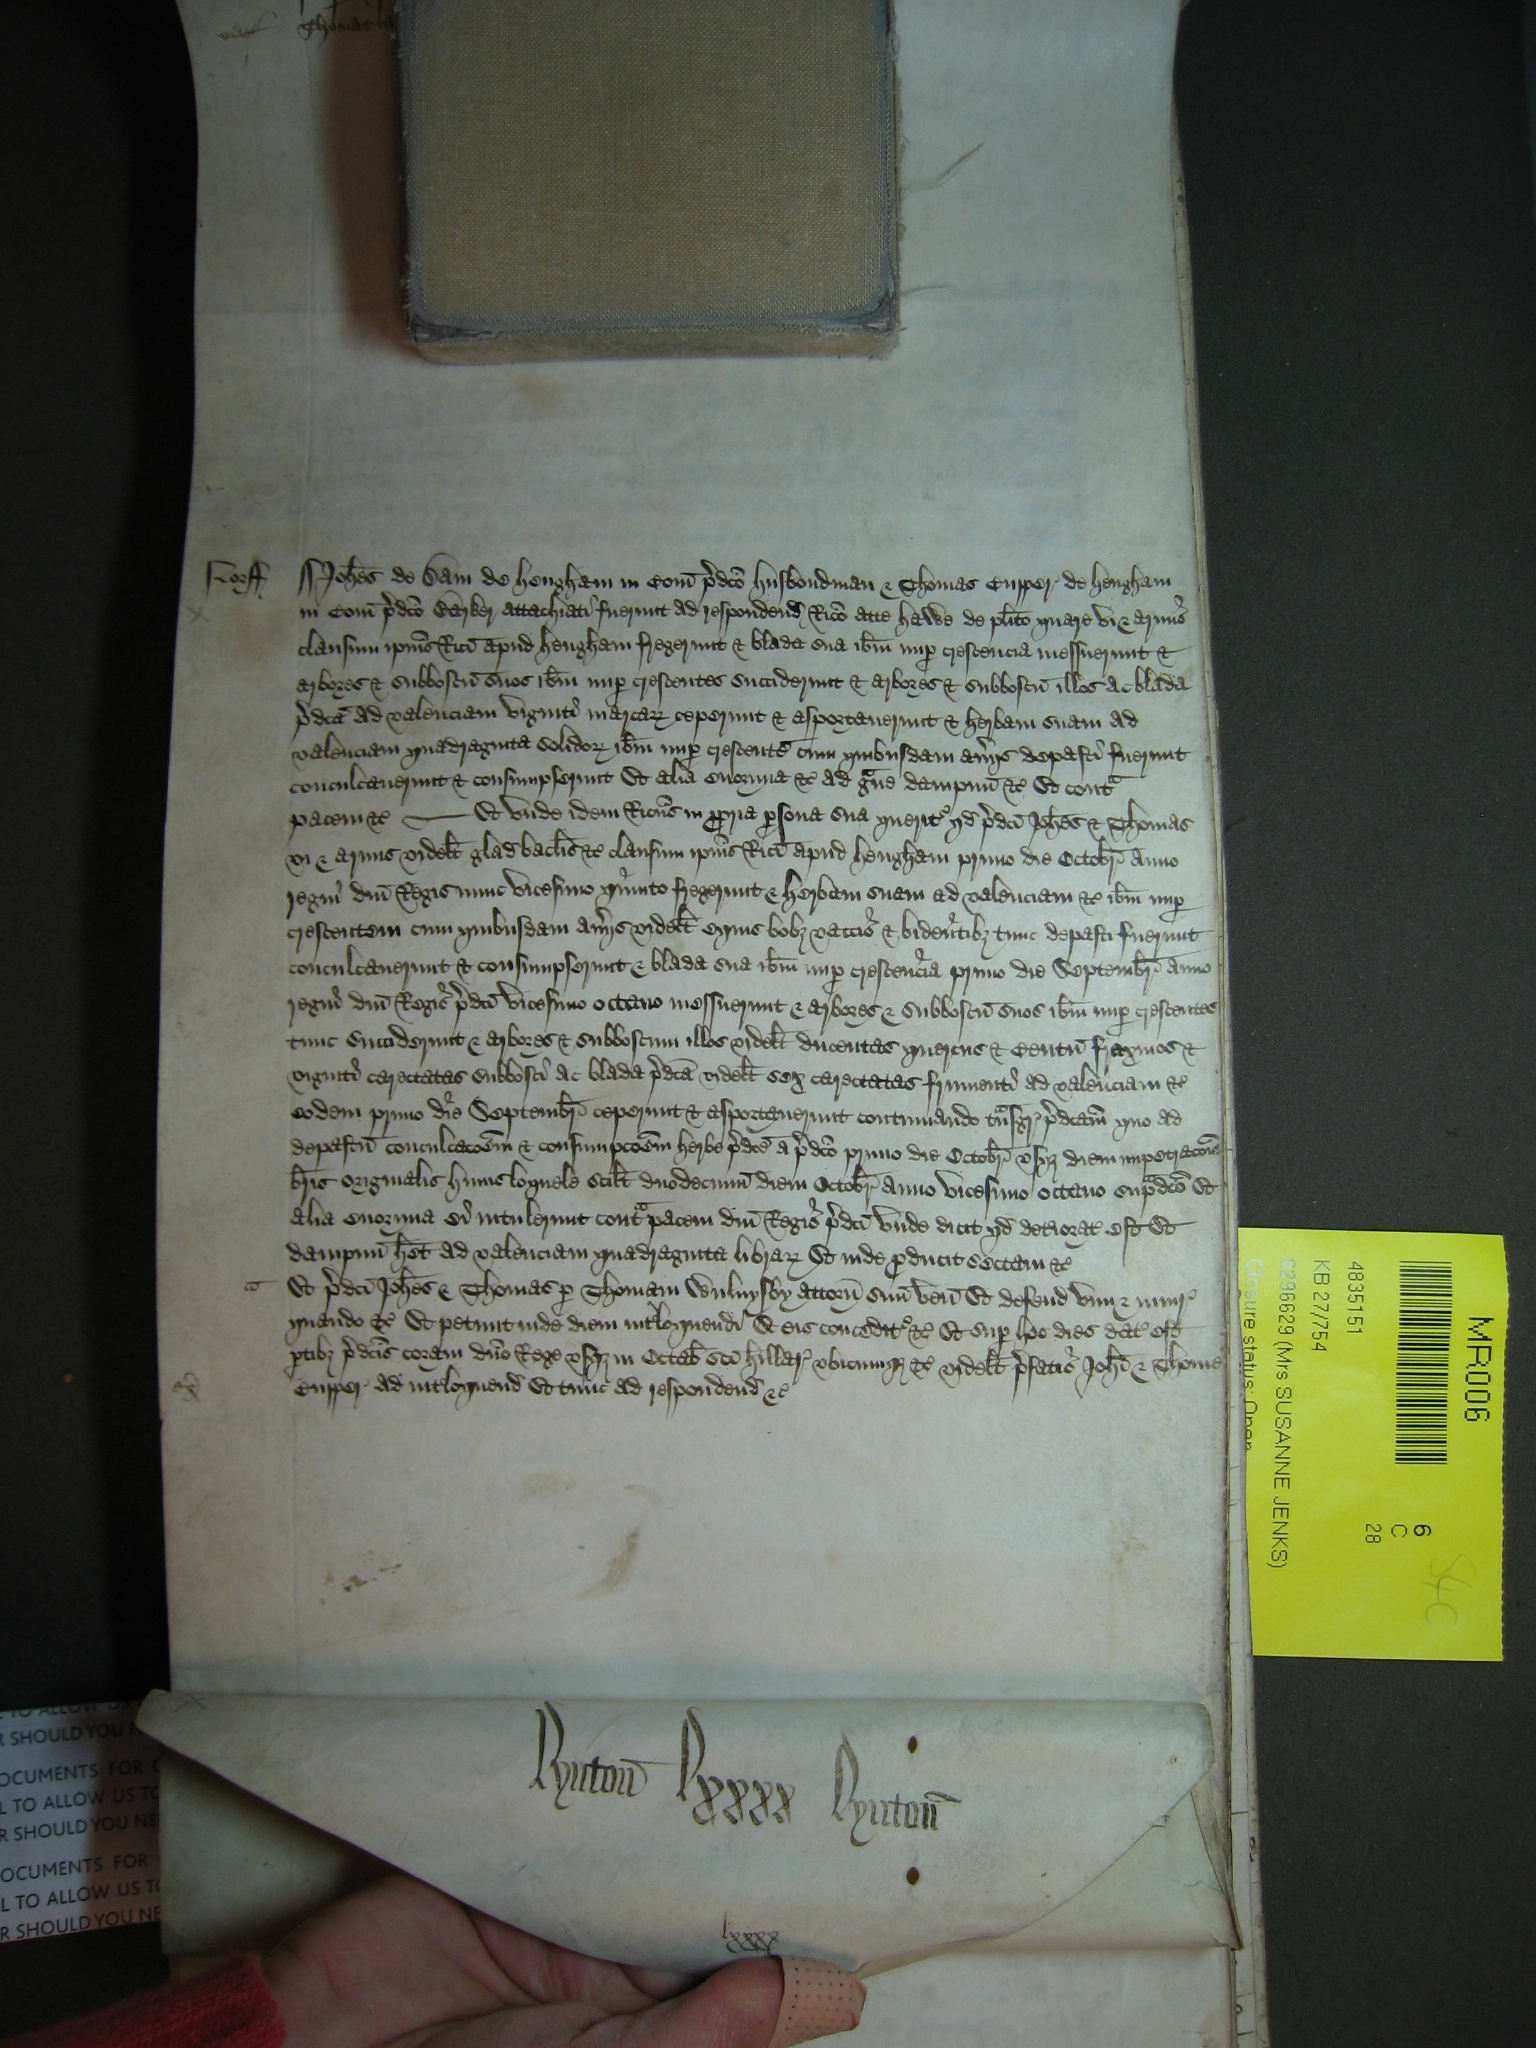 Thomas
Norff Joh̃es de Dam de Hengham in Com̃ p̃dc̃o husbondman & Thomas Cupper de hengham
in Com̃ p̃dc̃o Barker attachiati fuerunt ad respondend̃ Ric̃o atte hawe de pl̃ito quare vi & armis
clausum ip̃ius Ric̃i apud hengham fregerunt & blada sua ib̃m nup crescencia messuerunt &
arbores & subboscũ suos ib̃m nup crescentes succiderunt & arbores & subboscũ illos ac blada
p̃dcã ad valenciam viginti marcaꝝ ceperunt & asportauerunt & herbam suam ad
valenciam quadraginta solidoꝝ ib̃m nup crescentẽ cum quibusdam aũijs depasti fuerunt
conculcauerunt & consumpserunt Et alia enormia &c̃ ad g̃ue dampnũ &c̃ Et cont̃
pacem &c̃ Et vnde idem Ricũs in ppria psona sua querit᷒ qd̃ p̃dcĩ Joh̃es & Thomas
vi & armis videlt̃ glad bacul̃is &c̃ clausum ip̃ius Ric̃i apud hengham primo die Octobr̃ Anno
regni dñi Regis nunc vicesimo quinto fregerunt & herbam suam ad valenciam &c̃ ib̃m nup
crescentem cum quibusdam aũijs videlt̃ equis bobȝ vaccis & bidentibȝ tunc depasti fuerunt
conculcauerunt & consumpserunt & blada sua ib̃m nup crescencia primo die Septembr̃ Anno
regni dñi Regis p̃dcĩ vicesimo octauo messuerunt & arbores & subboscũ suos ib̃m nup crescentes
tunc succiderunt & arbores & subboscum illos videlt̃ ducentas quercus & Centũ fraxinos &
viginti carectatas subbosci ac blada p̃dcã videlt̃ sex carectatas frumenti ad valenciam &c̃
eodem primo die Septembr̃ ceperunt & asportauerunt continuando tñsgr̃ p̃dcãm quo ad
depastũ conculcacõem & consumpcõem herbe p̃dcẽ a p̃dcõ primo die Octobr̃ vsqȝ diem impetracõis
br̃is originalis huius loquele scilt̃ duodecimũ diem Octobr̃ Anno vicesimo octauo sup̃dcõ Et
alia enormia ei intulerunt cont̃ pacem dñi Regis p̃dcĩ vnde dicit qd̃ deteriorat᷒ est Et
dampnũ h̃et ad valenciam quadraginta libraꝝ Et inde pducit sectam &c̃
Et p̃dcĩ Joh̃es & Thomas p Thomam Wuluysby attorñ suũ veñ Et defend vim & iniur̃
quando &c̃ Et petunt inde diem int̃loquendi Et eis concedit᷒ &c̃ Et sup hoc dies dat᷒ est
ptibȝ p̃dcĩs coram dño Rege vsqȝ in Octab̃ Scĩ Hillar̃ vbicumqȝ &c̃ videlt̃ p̃fatis Joh̃i & Thome
Cupper ad int̃loquend̃ Et tunc ad respondend̃ &c̃
Lyntoñ lxxxx Lyntoñ
lxxxx
MR006
6
C
28
4835151
KB 27/754
0296629 (Mrs SUSANNE JENKS)
Closure status: Open
S4C
TO ALLOW US
R SHOULD YOU
OCUMENTS FOR
L TO ALLOW US TO
R SHOULD YOU NE
OCUMENTS FOR
L TO ALLOW US TO
R SHOULD YOU NE